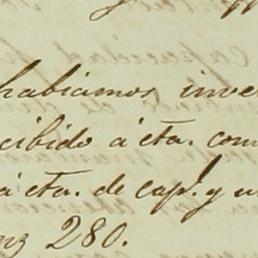 habiamos inve
cibido á cta. com
á cta. de cap.l y u
280.